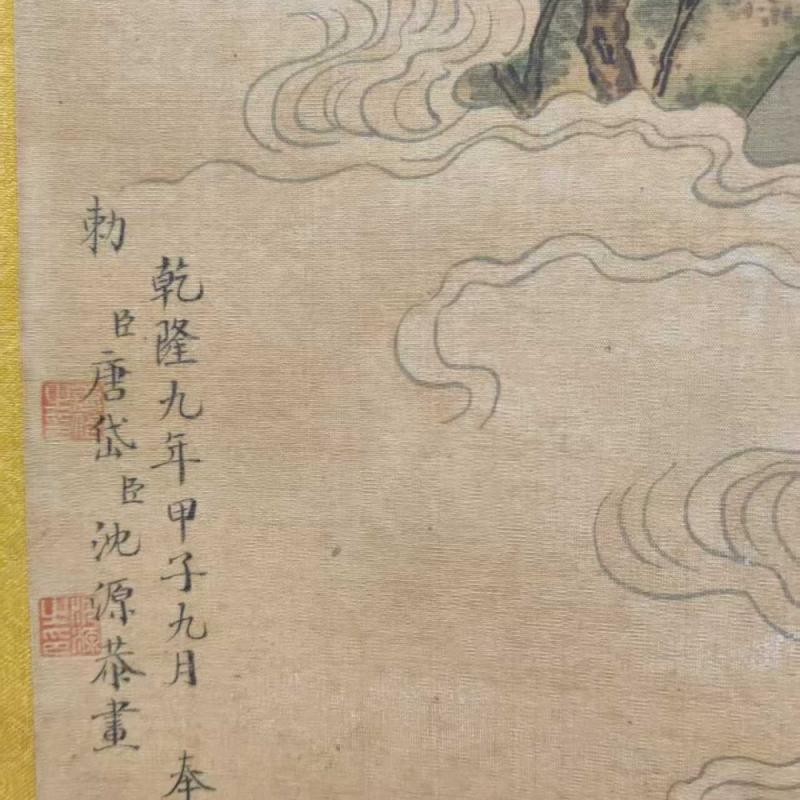 乾隆九年甲子九月　奉
勅　臣唐岱臣沈源恭畫